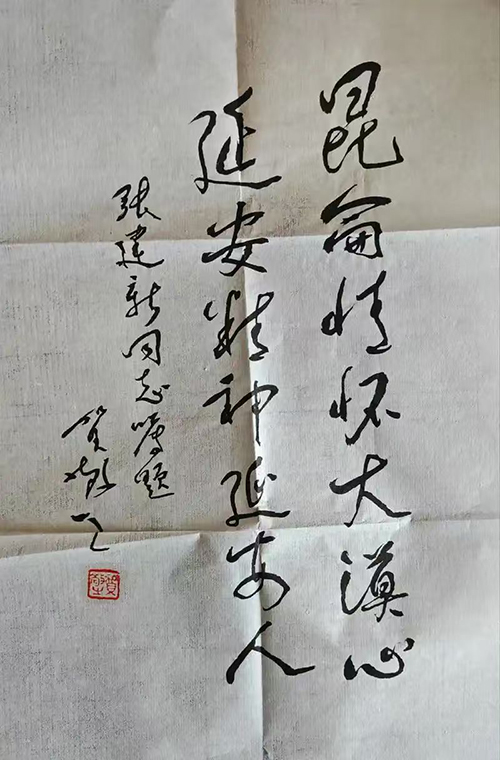 昆仑情怀大漠心
延安精神延安人
张建新同志嘱题
贺敬之